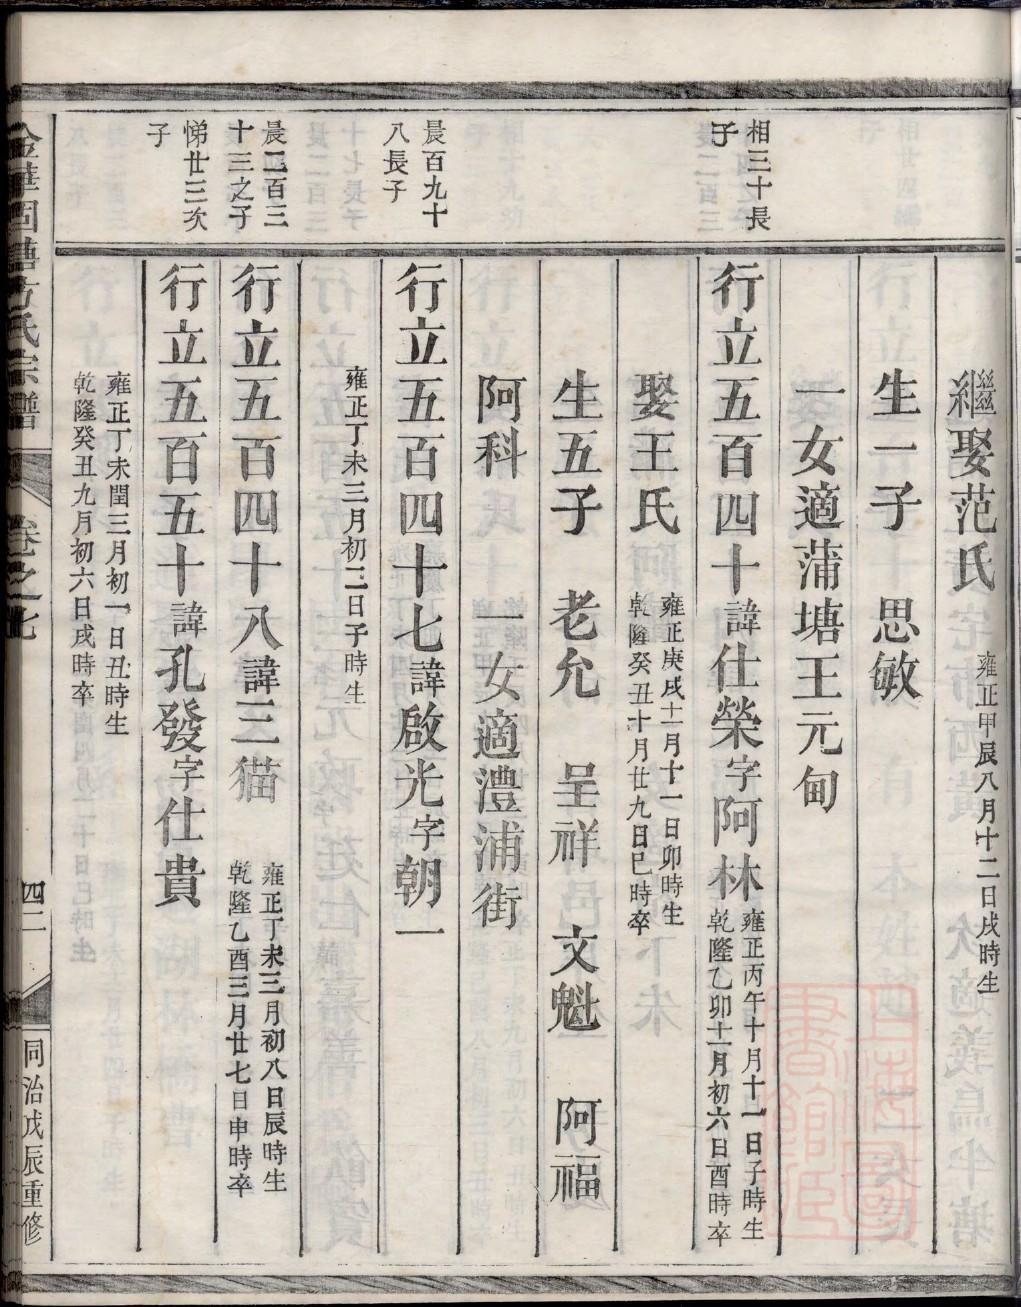 繼娶范氏
雍正甲辰八月十二日戌時生
生一子　思敏
一女適蒲塘王元甸
相三十長
子
行立五百四十諱仕榮字阿林
雍正丙午十月十一日子時生
乾隆乙卯十一月初六日酉時卒
娶王氏
雍正庚戌十一月十一日卯時生
乾隆癸丑十月廿九日巳時卒
生五子　老允　呈祥　文魁　阿福
阿科　一女適澧浦街
晨百九十
八長子
行立五百四十七諱啟光字朝一
雍正丁未三月初二日子時生
晨二百三
十三之子
行立五百四十八諱三猫
雍正丁未三月初八日辰時生
乾隆乙酉三月廿七日申時卒
悌廿三次
子
行立五百五十諱孔發字仕貴
雍正丁未閏三月初一日丑時生
乾隆癸丑九月初六日戌時卒
金華固塘方氏宗譜
卷之七
四二
同治戊辰重修